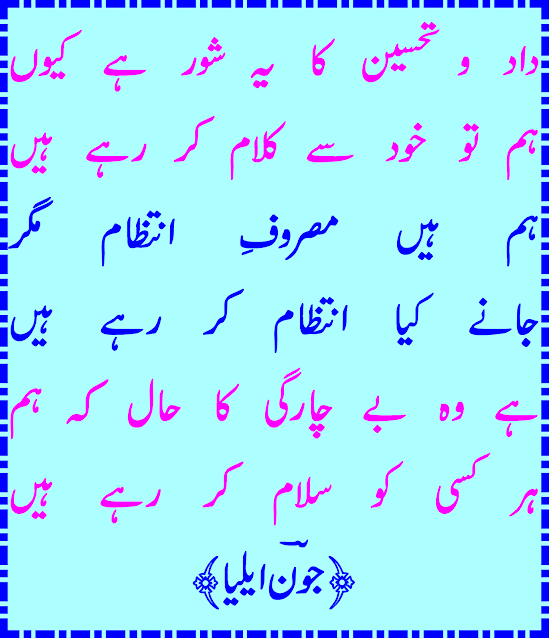 داد و تحسین کا یہ شور ہے کیوں
ہم تو خود سے کلام کر رہے ہیں
ہم ہیں مصروفِ انتظام مگر
جانے کیا انتظام کر رہے ہیں
ہے وہ بے چارگی کا حال کہ ہم
ہر کسی کو سلام کر رہے ہیں
﴿جونؔ ایلیا﴾